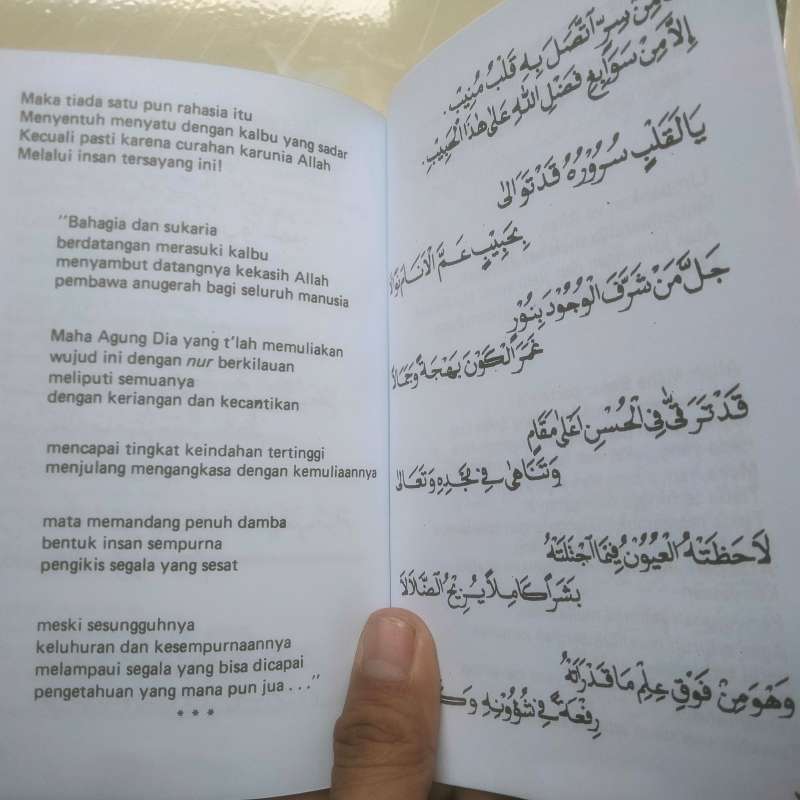 Maka tiada satu pun rahasia itu
Menyentuh menyatu dengan kalbu yang sadar
Kecuali pasti karena curahan karunia Allah
Melalui insan tersayang ini!
"Bahagia dan sukaria
berdatangan merasuki kalbu
menyambut datangnya kekasih Allah
pembawa anugerah bagi seluruh manusia
Maha Agung Dia yang t'lah memuliakan
wujud ini dengan nur berkilauan
meliputi semuanya
dengan keriangan dan kecantikan
mencapai tingkat keindahan tertinggi
menjulang mengangkasa dengan kemuliaannya
mata memandang penuh damba
bentuk insan sempurna
pengikis segala yang sesat
meski sesungguhnya
keluhuran dan kesempurnaannya
melampaui segala yang bisa dicapai
pengetahuan yang mana pun jua . . ."
* * *
مِنْ سِرٍّ اتَّصَلَ بِهِ قَلْبٌ مُنِيْبٌ.
إِلَّا مِنْ سَوَابِغِ فَضْلِ اللهِ عَلَى هٰذَا الْحَبِيْبِ.
يَا لَقَلْبٍ سُرُوْرُهُ قَدْ تَوَالَى
بِحَبِيْبٍ عَمَّ الْأَنَامَ نَوَالَا
جَلَّ مَنْ شَرَّفَ الْوُجُوْدَ بِنُوْرٍ
غَمَرَ الْكَوْنَ بَهْجَةً وَجَمَالَا
قَدْ تَرَقَّى فِي الْحُسْنِ أَعْلَى مَقَامٍ
وَتَنَاهَى فِي مَجْدِهِ وَتَعَالَى
لَاحَظَتْهُ الْعُيُوْنُ فِيْمَا اجْتَلَتْهُ
بَشَرًا كَامِلًا يُزِيْحُ الضَّلَالَا
وَهْوَ مِنْ فَوْقِ عِلْمِ مَا قَدْ رَأَتْهُ
رِفْعَةً فِي شُؤُوْنِهِ